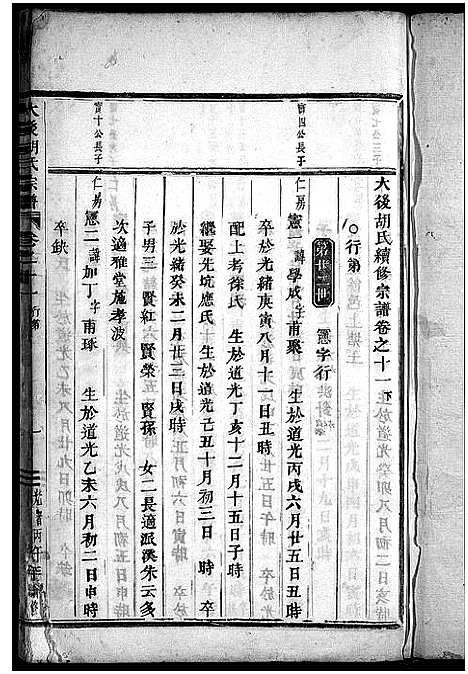 大後胡氏續修宗譜卷之十一下
○行第
第廿二世　憲字行
寅四公長子
仁易
憲一 諱學成 字甫聚　生於道光丙戌六月廿五日丑時
卒於光緒庚寅八月十一日丑時
配上考徐氏　生於道光丁亥十二月十五日子時
繼娶先坑應氏　生於道光己丑十月初三日　時　卒
於光緒癸未二月廿三日戌時
子男三　賢紅　賢榮　賢孫　女二長適派溪朱云多
次適雅堂施孝波
寅十公長子
仁易
憲二 諱加丁 字甫琢　生於道光乙未六月初二日申時
卒缺
大後胡氏宗譜
卷之十一
行第
一
光緒丙午年